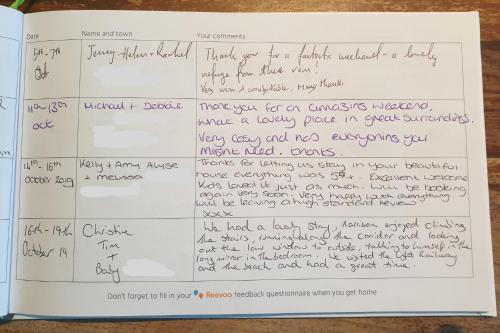 Date Name and town Your comments
5th - 7th Jenny Helen + Rachel Thank you for a fantastic weekend - a lovely
Oct refuge from the rain!
Very warm + comfortable, Many thanks
11th - 13th Michael + Debbie Thank you for an amazing weekend,
oct what a lovely place in great surroundings.
Very cosy and has everything you
might need. thanks.
14th - 16th Kelly + Amy Thanks for letting us stay in your beautiful
October 2019 + melissa house everything was 5*. Excellent welcome
Kids loved it just as much. Will be booking
again very soon. Very happy with everything
will be leaving a high standard review
xxx
16th - 19th Christie We had a lovely stay, Harrison enjoyed climbing
October 19 Tim the stairs, running along the corridor and looking
+ out the low window to outside, talking to himself in the
Baby long mirror in the bedroom. We visited the Light Railway
and the beach and had a great time.
Don't forget to fill in your Reevoo feedback questionnaire when you get home